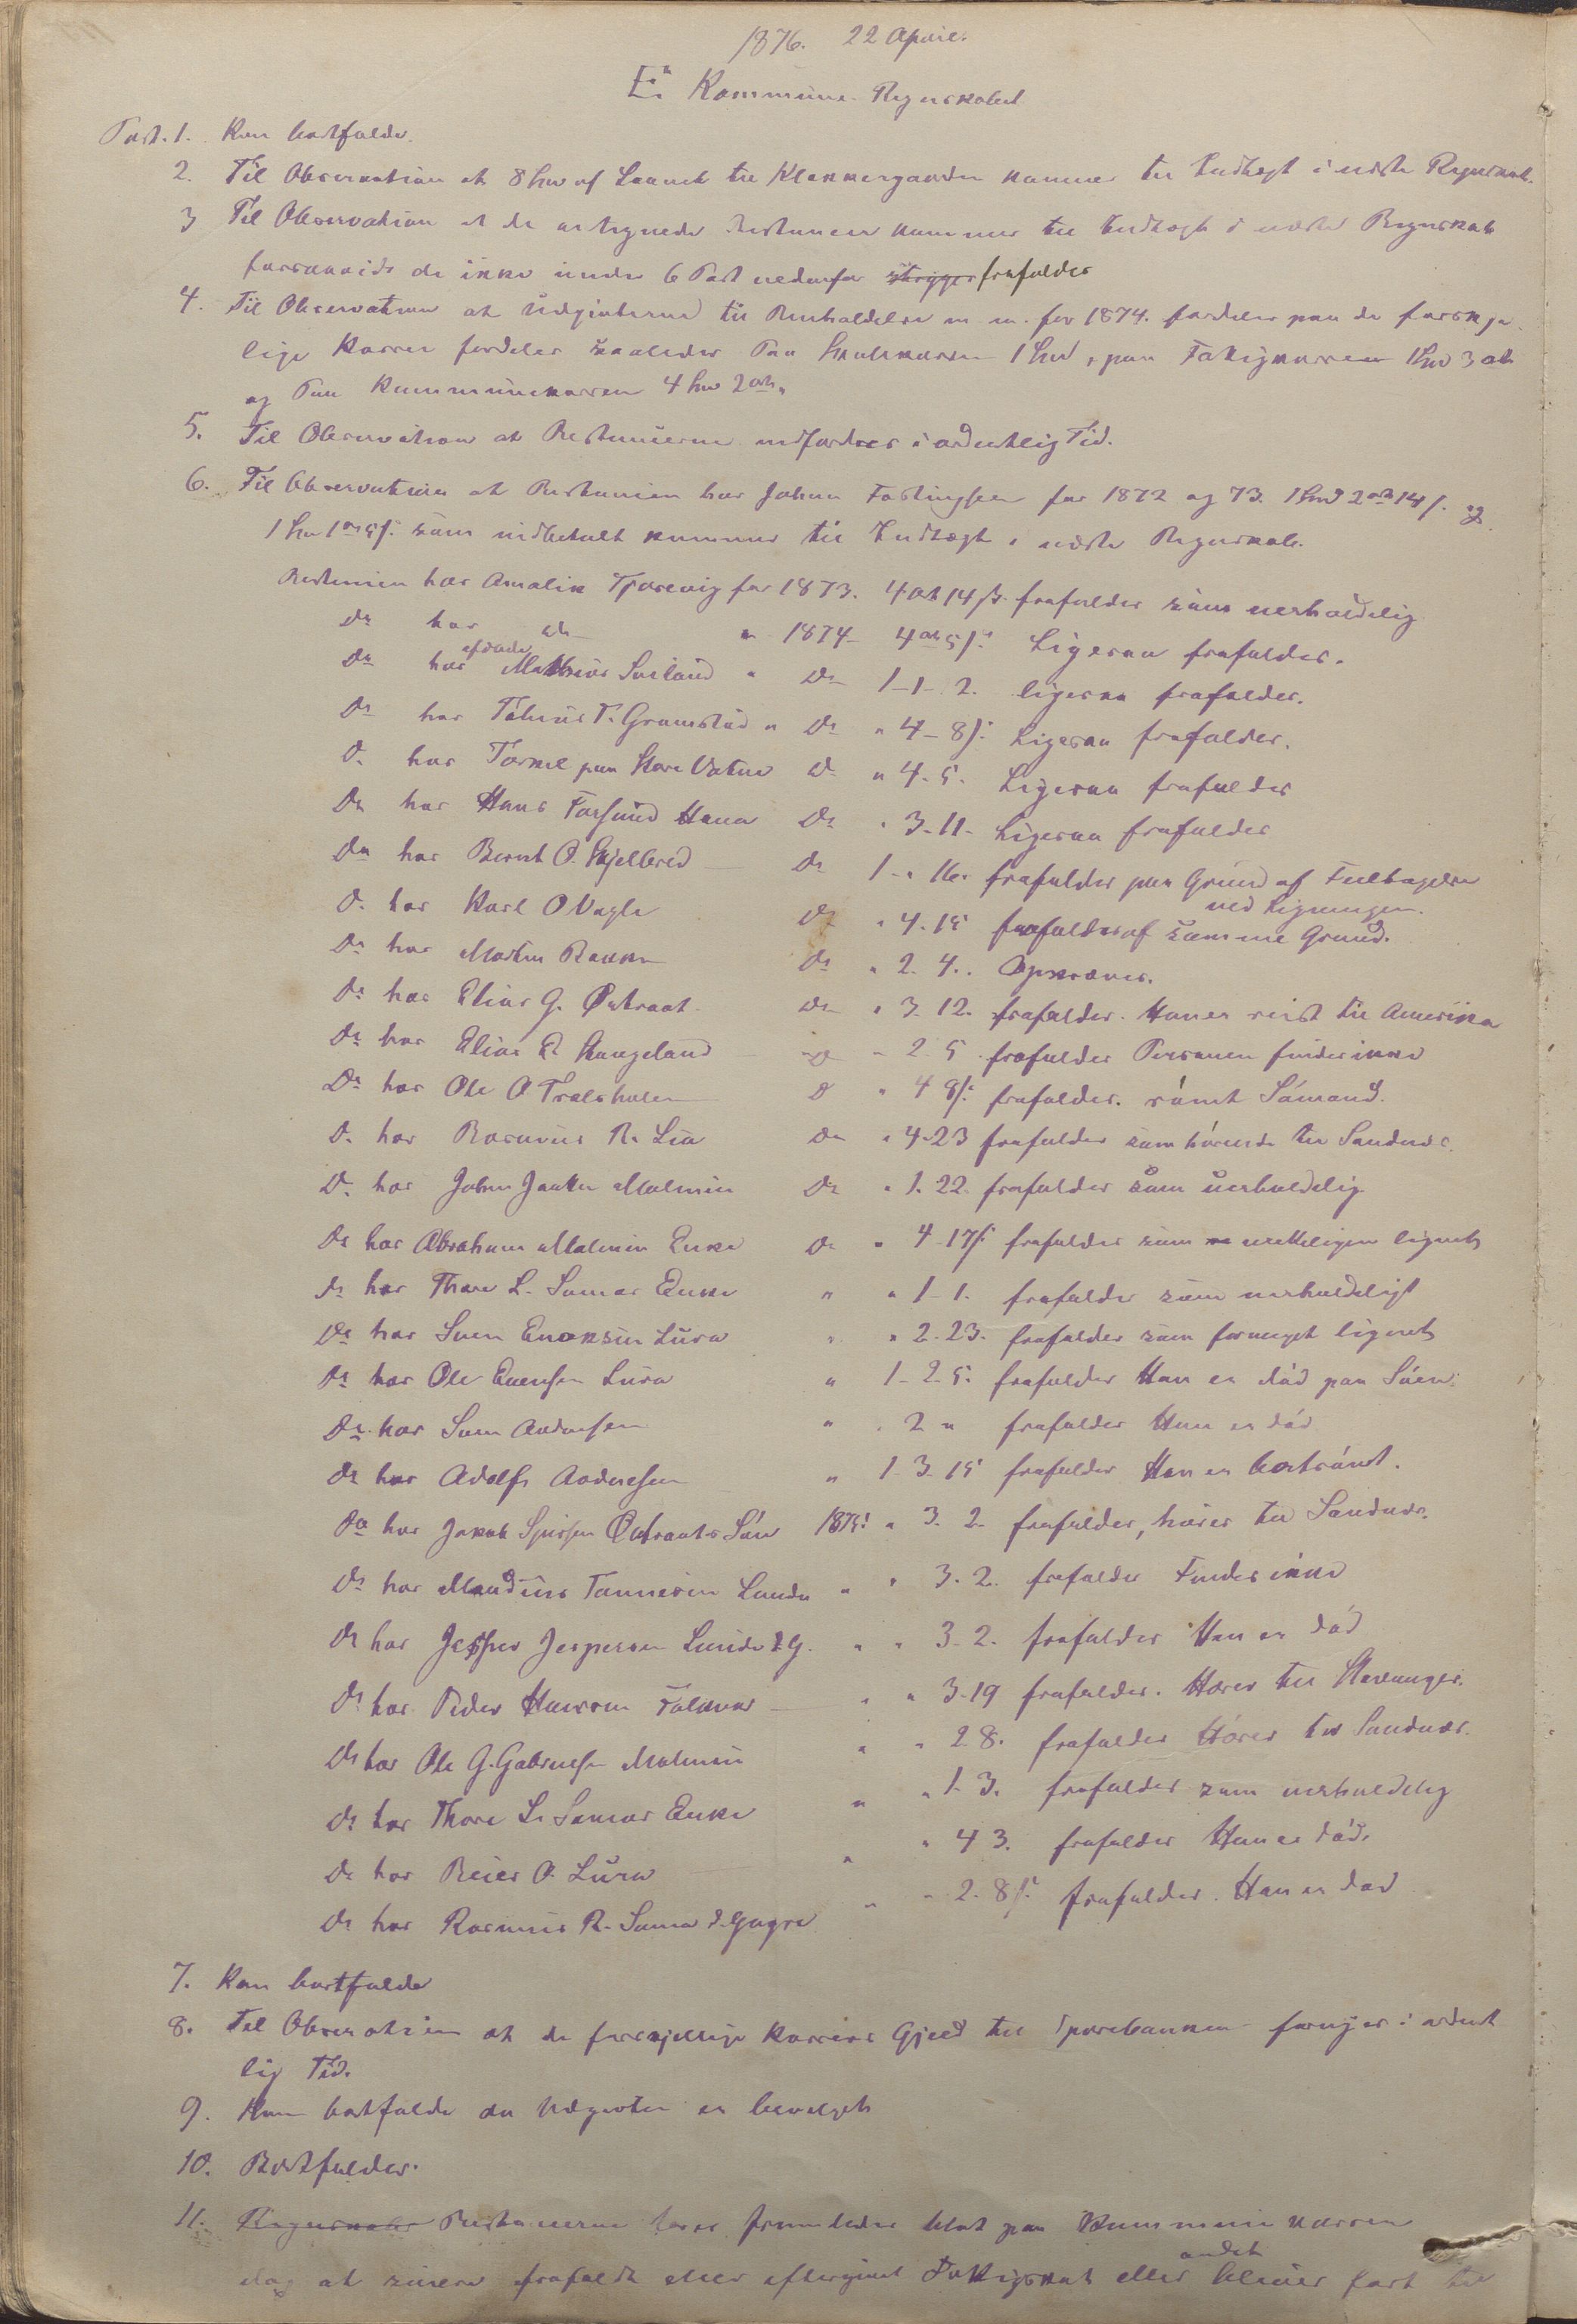 1876. 22 April.
Kommune Regnskabet
Post. 1. Kan bortfalde.
2. Til Observation at 8 af Laanet til Klokkergaarden kommer til Indtægt i næste Regnskab.
3 Til Observation at de antegnede Restancer kommer til Indtægt i næste Regnskab
forsaavidt de ikke under 6 Post nedenfor stryges frafaldes
4. Til Observation at Udgifterne til Renholdelse m. m. for 1874. fordeles paa de forskje
lige Kasser fordeles saaledes Paa Skolekassen 1 , paa Fattigkassen 1 3 ort
og Paa Kommunekassen 4 2 ort.
5. Til Observation at Restancerne indfordres i ordentlig Tid.
6. Til Observation at Restancen hos Johan Fostingsen for 1872 og 73. 1 2 ort 14 s. og
1 1 ort 5 s. som indbetalt kommer til Indtægt i næste Regnskab.
Restancen hos Amalie Tjosevig for 1873. 4 ort 14 s. frafaldes som uerholdelig
Do hos do " 1874 4 ort 5 s. Ligesaa frafaldes.
Do hos afdøde Mathias Soiland " Do 1-1-2. ligesaa frafaldes.
Do hos Tønnes T. Gramstad " Do " 4-8 s. Ligesaa frafaldes.
Do hos Torkel paa Store Vatne Do " 4-5. Ligesaa frafaldes
Do hos Hans Forsund Hana Do " 3-11- Ligesaa frafaldes
Do hos Bernt O. Skjelbred Do 1-"16. frafaldes paa Grund af Feiltagelse
ved Ligningen.
Do hos Karl O Vagle Do " 4.15 frafaldes af samme Grund.
Do hos Morten Bakke Do " 2. 4.. Opkræves.
Do hos Elias G. Østraat Do " 3-12. frafaldes. Han er reist til Amerika
Do hos Elias E Haugeland Do " 2 5 frafaldes Personen findes ikke
Do hos Ole O Tralsholen Do " 4 8 s. frafaldes. rømt Sømand.
Do hos Rasmus R. Lia Do " 4-23 frafaldes som hørende til Sandnes.
Do hos Johan Malmin Do " 1. 22 frafaldes som uerholdelig
Do hos Abraham Malmin Enke Do " 4-17 s. frafaldes som urettelig lignet
Do hos Thore L. Somas Enke " " 1-1. frafaldes som uerholdeligt
Do hos Sven Enoksen Lura " " 2-23. frafaldes som formeget lignet
Do hos Ole Evensen Lura " 1-2-5. frafaldes Han er død paa Søen.
Do hos Sven Andersen " " 2 " frafaldes Han er død
Do hos Adolf Andersen " 1-3-15 frafaldes Han er bortrømt.
Do hos Jakob Østraats Søn 1875. " 3. 2. frafaldes, hører til Sandnes.
Do hos Maudius Tønnesen Lunde " " 3.2. frafaldes Findes ikke
Do hos Jesper Jespersen Lunde d.y. " " 3-2. frafaldes Han er død
Do hos Peder Hansen Folkvor " " 3-19 frafaldes. Hører til Stavanger.
Do hos Ole G. Gabrielsen Malmin " " 2 8. frafaldes Hører til Sandnes.
Do hos Thore L. Somas Enke " " 1-3. frafaldes som uerholdelig
Do hos Reier O. Lura " " 4 3. frafaldes Han er død.
Do hos Rasmus R. Soma d. yngre " " 2. 8 s. frafaldes. Han er død
7. Kan bortfalde
8. Til Observation at de forskjellige Kassers Gjeld til Sparebanken fornyes i ordent
lig Tid.
9. Kan bortfalde da Udgiften er bevilget
10. Bortfaldes.
11. Regnskabs Restancerne føres fremdeles blot paa Kommunekassen
dog at senere frafaldt eller eftergivet Fattigskat eller andet bliver ført til